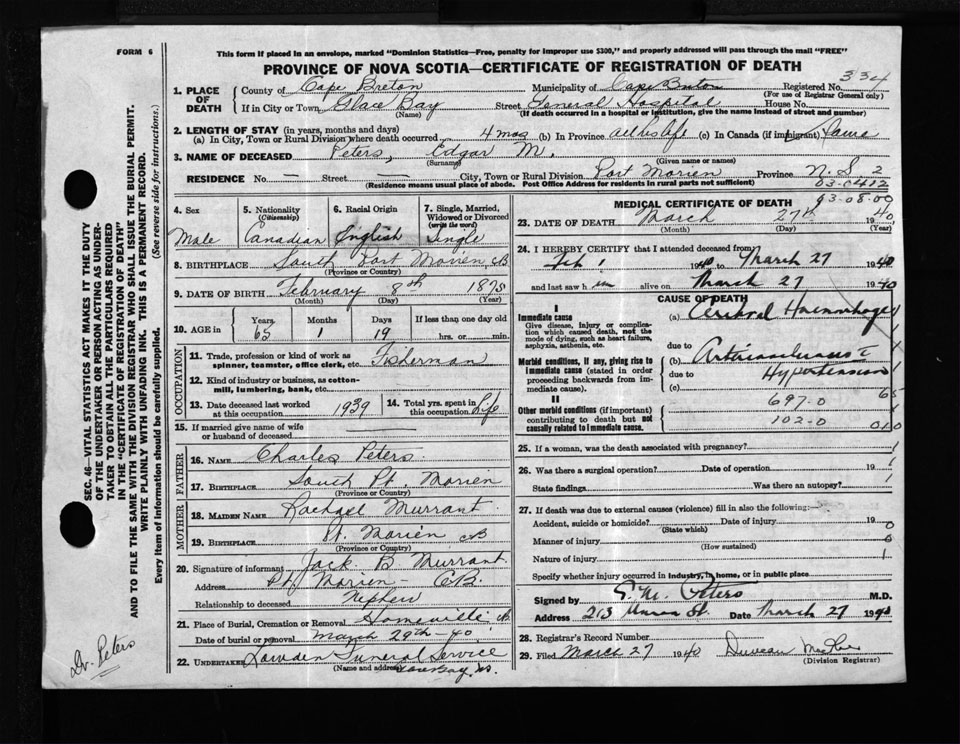 FORM 6
This form if placed in an envelope, marked "Dominion Statistics—Free, penalty for improper use $300," and properly addressed will pass through the mail "FREE"
PROVINCE OF NOVA SCOTIA—CERTIFICATE OF REGISTRATION OF DEATH
334
1. PLACE OF DEATH County of Cape Breton Municipality of Cape Breton Registered No.
(For use of Registrar General only)
If in City or Town Glace Bay Street General Hospital House No.
(Name) (If death occurred in a hospital or institution, give the name instead of street and number)
2. LENGTH OF STAY (in years, months and days)
(a) In City, Town or Rural Division where death occurred 4 mos (b) In Province all his life (c) In Canada (if immigrant) Same
3. NAME OF DECEASED Peters, Edgar M.
(Surname) (Given name or names)
RESIDENCE No. — Street — City, Town or Rural Division Port Morien Province N. S 2
(Residence means usual place of abode. Post Office Address for residents in rural parts not sufficient) 03-0412
4. Sex 5. Nationality (Citizenship) 6. Racial Origin 7. Single, Married, Widowed or Divorced (write the word)
Male Canadian English Single
8. BIRTHPLACE South Port Morien, CB
(Province or Country)
9. DATE OF BIRTH February 8th 1875
(Month) (Day) (Year)
10. AGE in Years Months Days If less than one day old
65 1 19 hrs. or min.
OCCUPATION
11. Trade, profession or kind of work as spinner, teamster, office clerk, etc. Fisherman
12. Kind of industry or business, as cotton-mill, lumbering, bank, etc.
13. Date deceased last worked at this occupation 1939 14. Total yrs. spent in this occupation Life
15. If married give name of wife or husband of deceased
FATHER
16. NAME Charles Peters
17. BIRTHPLACE South Pt. Morien
(Province or Country)
MOTHER
18. MAIDEN NAME Rachael Murrant
19. BIRTHPLACE Pt. Morien CB
(Province or Country)
20. Signature of informant Jack B Murrant
Address Pt Morien - C.B.
Relationship to deceased Nephew
21. Place of Burial, Cremation or Removal Homeville CB
Date of burial or removal March 29th - 40
22. UNDERTAKER Lowden Funeral Service
(Name and address)
MEDICAL CERTIFICATE OF DEATH 93-08-00
23. DATE OF DEATH March 27th 1940
(Month) (Day) (Year)
24. I HEREBY CERTIFY that I attended deceased from
Feb 1 1940 to March 27 1940
and last saw h im alive on March 27 1940
CAUSE OF DEATH
I
Immediate cause (a) Cerebral Haemorrhage
Give disease, injury or complication which caused death, not the mode of dying, such as heart failure, asphyxia, asthenia, etc.
due to
Morbid conditions, if any, giving rise to immediate cause (stated in order proceeding backwards from immediate cause).
(b) Arteriosclerosis
due to Hypertension
(c)
697-0 65
II
Other morbid conditions (if important) contributing to death but not causally related to immediate cause.
102-0 010
25. If a woman, was the death associated with pregnancy? 1
26. Was there a surgical operation? Date of operation 19 1
State findings Was there an autopsy? 1
27. If death was due to external causes (violence) fill in also the following:—
Accident, suicide or homicide? Date of injury 19 0
(State which)
Manner of injury 0
(How sustained)
Nature of injury 1
Specify whether injury occurred in industry, in home, or in public place
Signed by E. M. Peters M.D.
Address 213 Union St. Date March 27 1940
28. Registrar's Record Number
29. Filed March 27 1940 Duncan
(Division Registrar)
SEC. 46—VITAL STATISTICS ACT MAKES IT THE DUTY
OF THE UNDERTAKER OR PERSON ACTING AS UNDER-
TAKER TO OBTAIN ALL THE PARTICULARS REQUIRED
IN THE "CERTIFICATE OF REGISTRATION OF DEATH"
AND TO FILE THE SAME WITH THE DIVISION REGISTRAR WHO SHALL ISSUE THE BURIAL PERMIT.
WRITE PLAINLY WITH UNFADING INK. THIS IS A PERMANENT RECORD.
Every item of information should be carefully supplied. (See reverse side for instructions.)
Dr. Peters